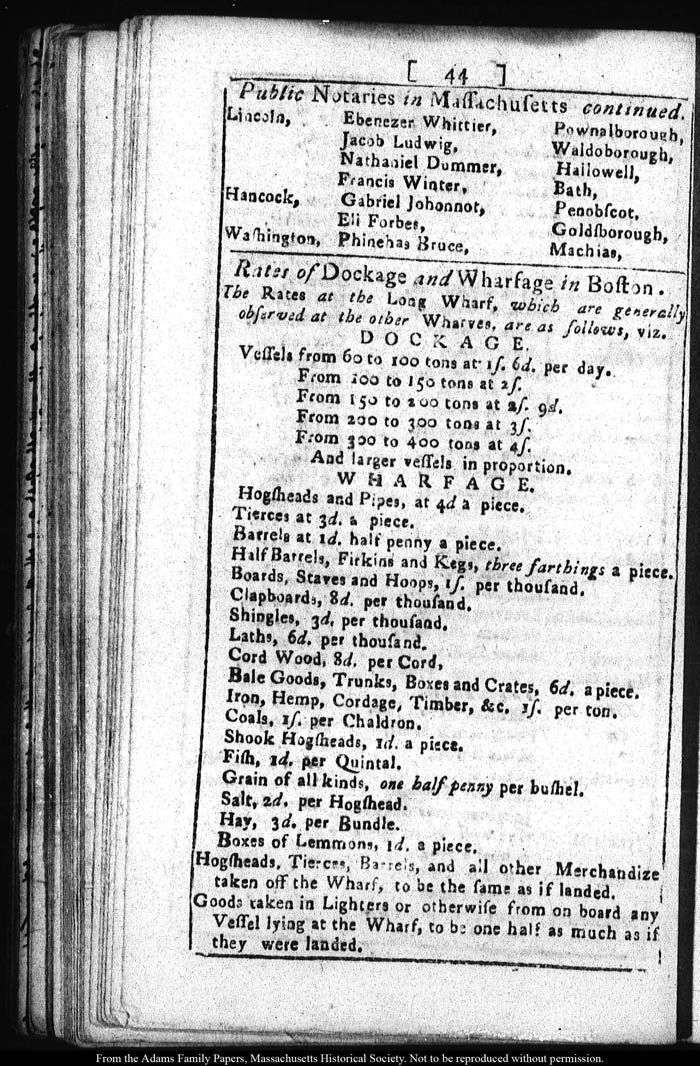 [ 44 ]
Public Notaries in Maſſachuſetts continued.
Lincoln, Ebenezer Whittier, Pownalborough,
Jacob Ludwig, Waldoborough,
Nathaniel Dummer, Hallowell,
Francis Winter, Bath,
Hancock, Gabriel Johonnot, Penobſcot.
Eli Forbes, Goldſborough,
Waſhington, Phinehas Bruce, Machias,
Rates of Dockage and Wharfage in Boſton.
The Rates at the Long Wharf, which are generally
obſerved at the other Wharves, are as follows, viz.
DOCKAGE.
Veſſels from 60 to 100 tons at 1ſ. 6d. per day.
From 100 to 150 tons at 2ſ.
From 150 to 200 tons at 2ſ. 9d.
From 200 to 300 tons at 3ſ.
From 300 to 400 tons at 4ſ.
And larger veſſels in proportion.
WHARFAGE.
Hogſheads and Pipes, at 4d a piece.
Tierces at 3d. a piece.
Barrels at 1d. half penny a piece.
Half Barrels, Firkins and Kegs, three farthings a piece.
Boards, Staves and Hoops, 1ſ. per thouſand.
Clapboards, 8d. per thouſand.
Shingles, 3d, per thouſand.
Laths, 6d. per thouſand.
Cord Wood, 8d. per Cord,
Bale Goods, Trunks, Boxes and Crates, 6d. a piece.
Iron, Hemp, Cordage, Timber, &c. 1ſ. per ton.
Coals, 1ſ. per Chaldron.
Shook Hogſheads, 1d. a piece.
Fiſh, 1d. per Quintal.
Grain of all kinds, one half penny per buſhel.
Salt, 2d. per Hogſhead.
Hay, 3d. per Bundle.
Boxes of Lemmons, 1d. a piece.
Hogſheads, Tierces, Barrels, and all other Merchandize
taken off the Wharf, to be the ſame as if landed.
Goods taken in Lighters or otherwiſe from on board any
Veſſel lying at the Wharf, to be one half as much as if
they were landed.
From the Adams Family Papers, Massachusetts Historical Society. Not to be reproduced without permission.